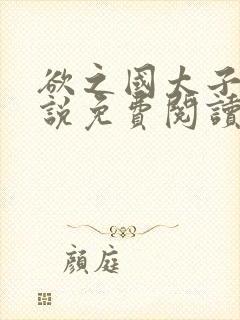 欲之國大子
說免費閱讀
顔庭